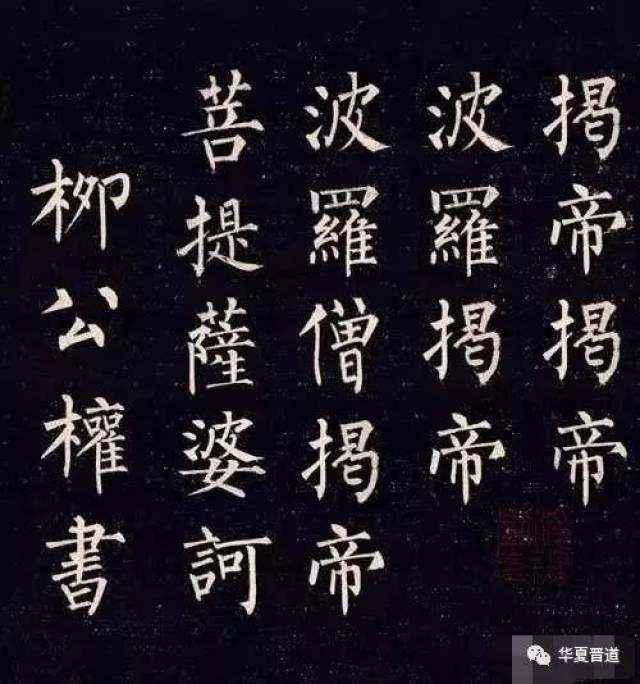 揭帝揭帝
波羅揭帝
波羅僧揭帝
菩提薩婆訶
柳公權書
华夏晋道